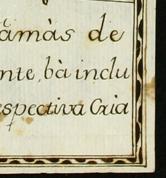 tàmàs de
nte, bà inclu
spectiva Cria